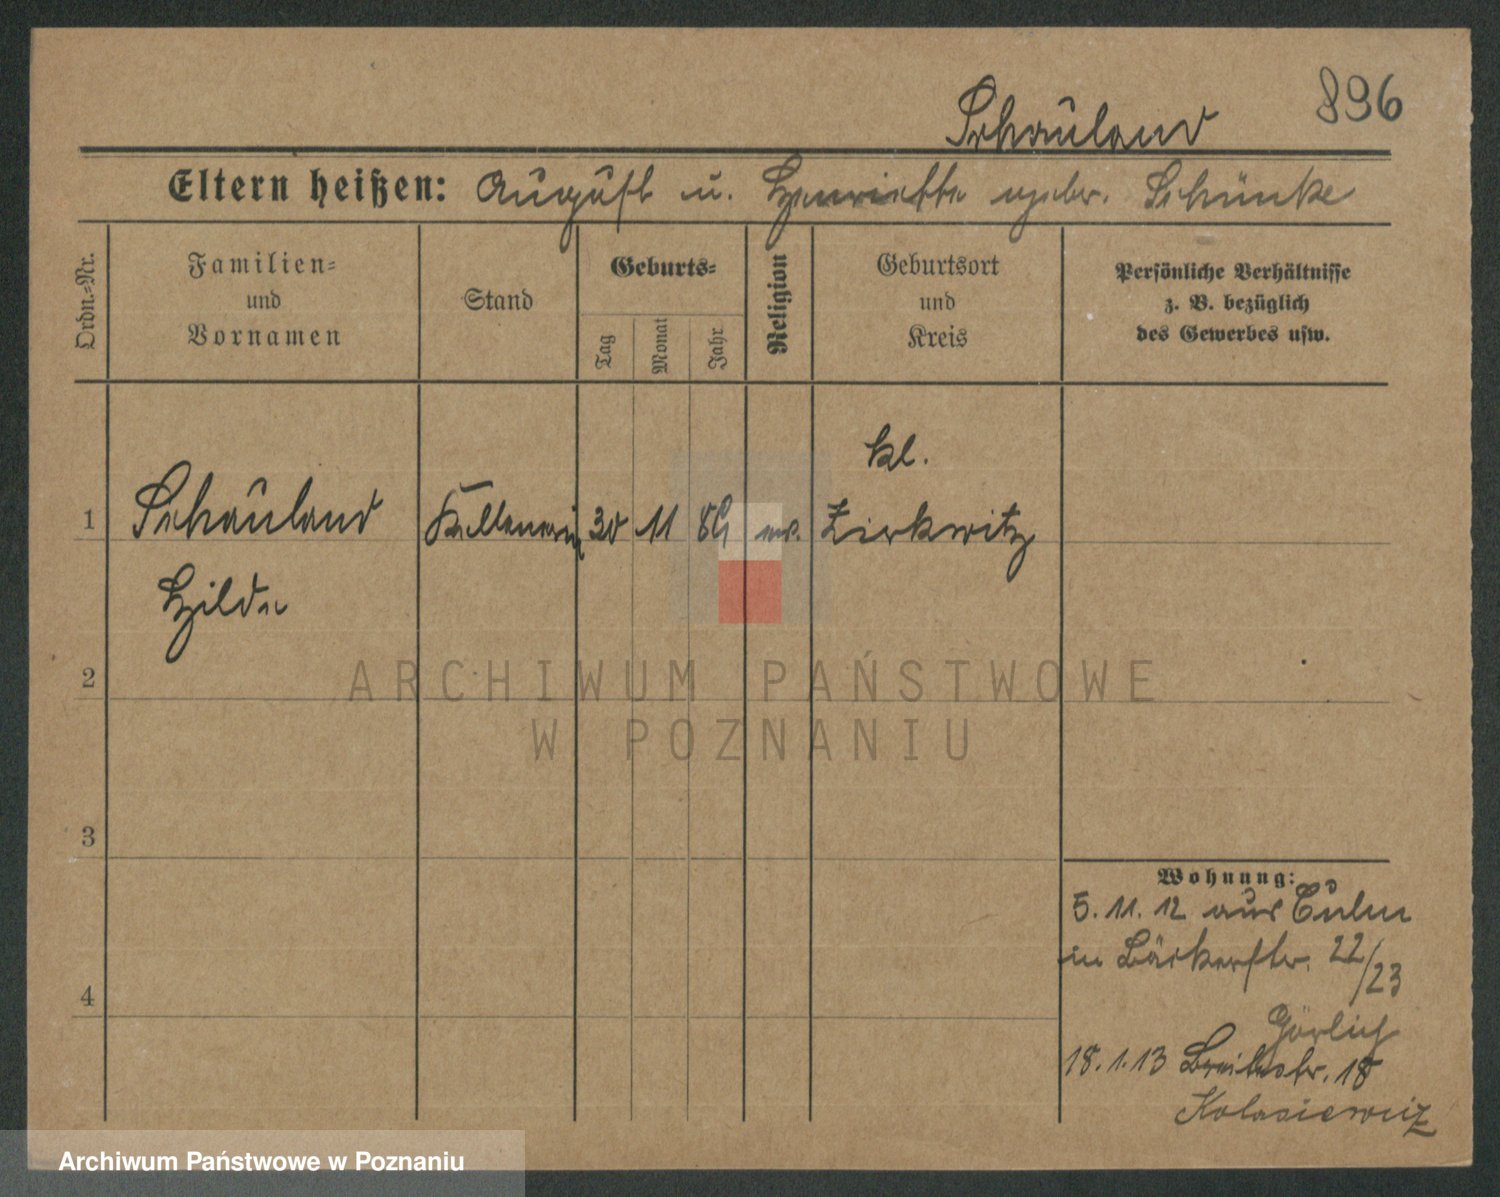 896
Schauland
Eltern heißen: August u. Henriette gebr. Schünke
Ordn.=Nr.
Familien=
und
Vornamen
Stand
Geburts=
Tag
Monat
Jahr
Religion
Geburtsort
und
Kreis
Persönliche Verhältnisse
z. B. bezüglich
des Gewerbes usw.
kl.
1 Schauland Kellnerin 30 11 ev. Zirkwitz
Hilda
2
ARCHIWUM PAŃSTWOWE
W POZNANIU
3
4
Wohnung:
5. 11. 12 aus Culm
in Bäckerstr. 22/23
Görlich
18. 1. 13 Breitestr. 18
Kolasiewicz
Archiwum Państwowe w Poznaniu